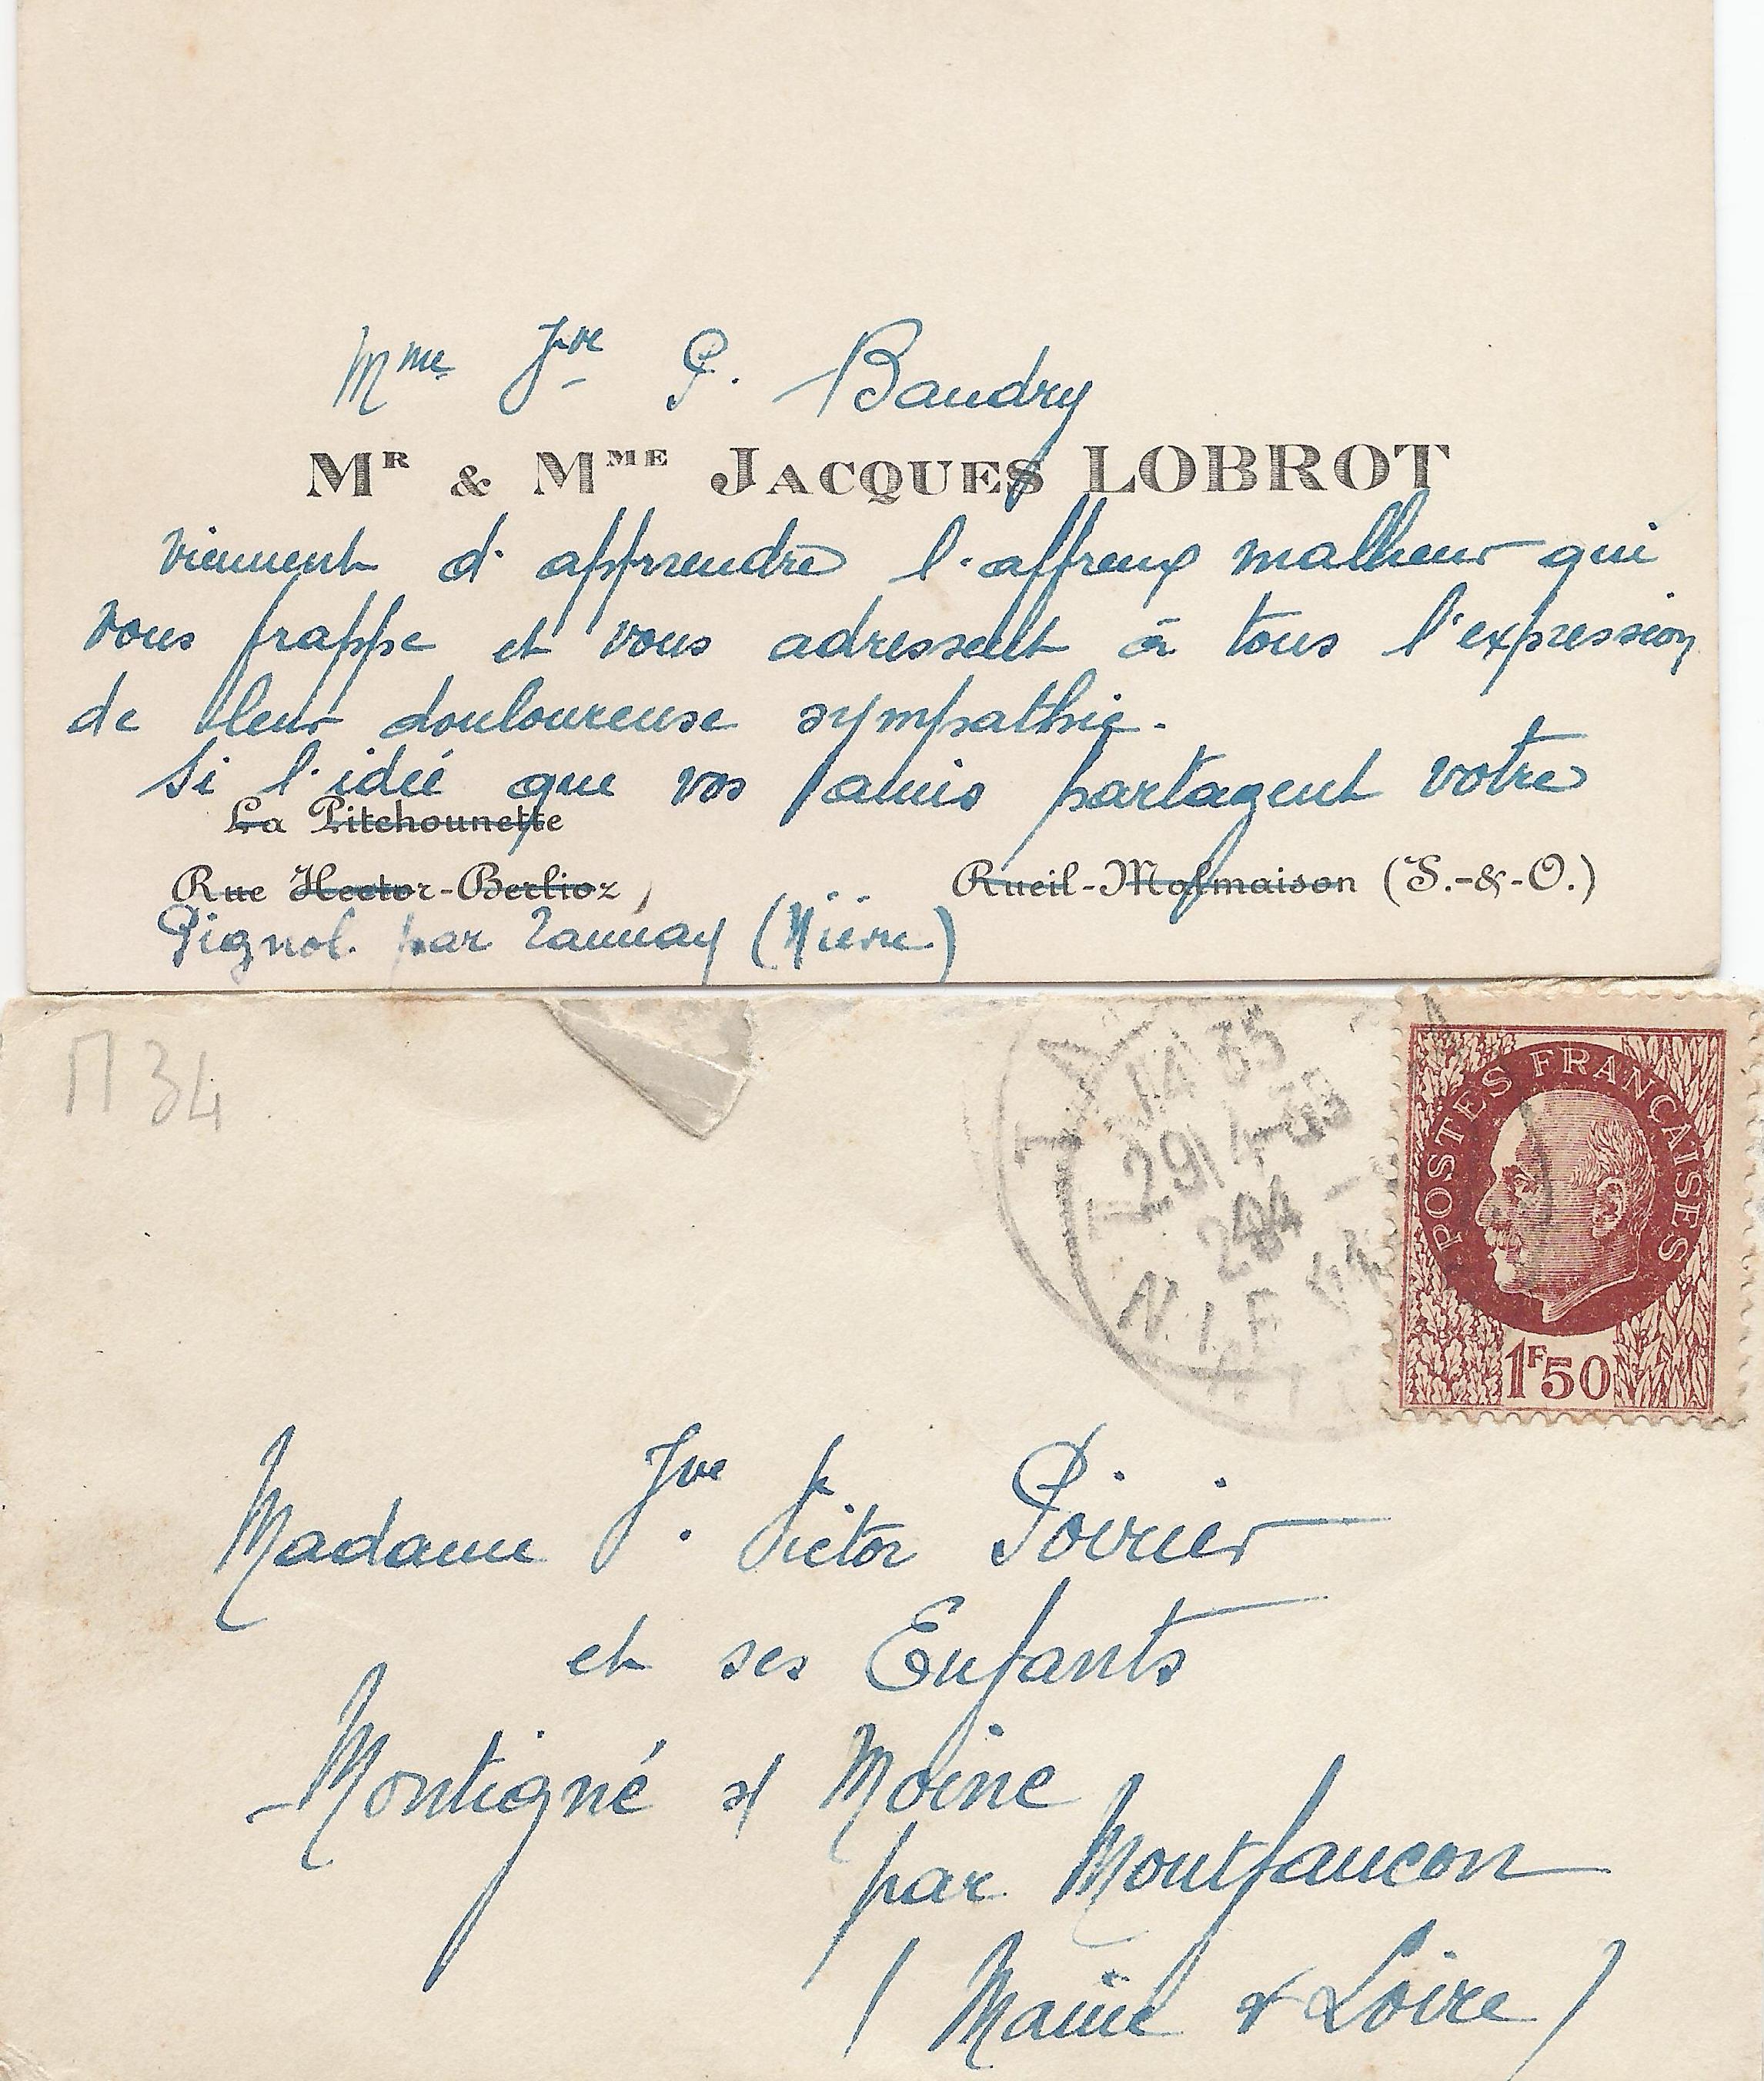 Mme Vve P. Baudry
MR & MME JACQUES LOBROT
viennent d'apprendre l'affreux malheur qui
vous frappe et vous adressent à tous l'expression
de leur douloureuse sympathie.
Si l'idée que vos amis partagent votre
La Pitchounette
Rue Hector-Berlioz, Rueil-Malmaison (S.-&-O.)
Pignol par Tannay (Nièvre)
34
POSTES FRANÇAISES
1F50
Madame Vve Victor Poirier
et ses Enfants
Montigné s/ Moine
par Montfaucon
(Maine & Loire)